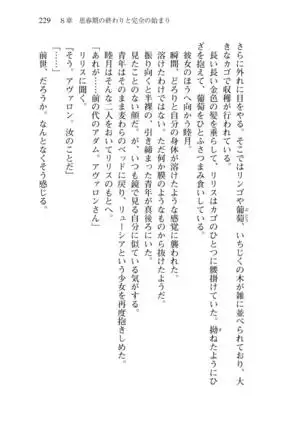 229　8章　思春期の終わりと完全の始まり
さらに外れに目をやる。そこではリンゴや葡萄、いちじくの木が雑に並べられており、大
きなカゴで収穫が行われている。
長い長い金色の髪を垂らして、リリスはカゴのひとつに腰掛けていた。拗ねたようにひ
ざを抱えて、葡萄をひとふさつまみ食いしている。
彼女のほうへ向かう睦月。
瞬間、どろりと自分の身体が溶けたような感覚に襲われた。
溶けたわけではない。ただ何か膜のようなものから抜けたようだ。
振り向くと半裸の、引き締まった青年が真後ろにいた。
見たことのない顔だ。が、いつも鏡で見る自分に似ている気がする。
青年はそのまま麦わらのベッドに戻り、リューシアという少女を再度抱きしめた。
睦月はそんな二人をおいてリリスのもとへ。
「あれが……前の代のアダム。アヴァロンさん」
「そう。アヴァロン。汝のことだ」
リリスに言われる。
前世、だろうか。なんとなくそう感じる。